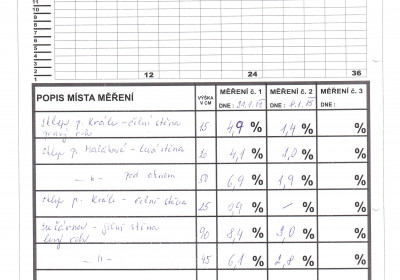 11
10
9
8
7
6
5
4
3
2
1
12 24 36
POPIS MÍSTA MĚŘENÍ VÝŠKA V CM MĚŘENÍ č. 1 MĚŘENÍ č. 2 MĚŘENÍ č. 3
DNE: DNE: DNE:
sklep p. Krále - čelní stěna 15 4,9 % 1,4 % %
sklep p. - levá stěna 10 4,1 % 1,0 % %
- " - pod oknem 50 6,9 % 1,9 % %
sklep p. Krále - čelní stěna 25 9,9 - % %
- jižní stěna 90 8,4 % 3,0 % %
levý roh
- " - 45 6,1 % 2,8 % %